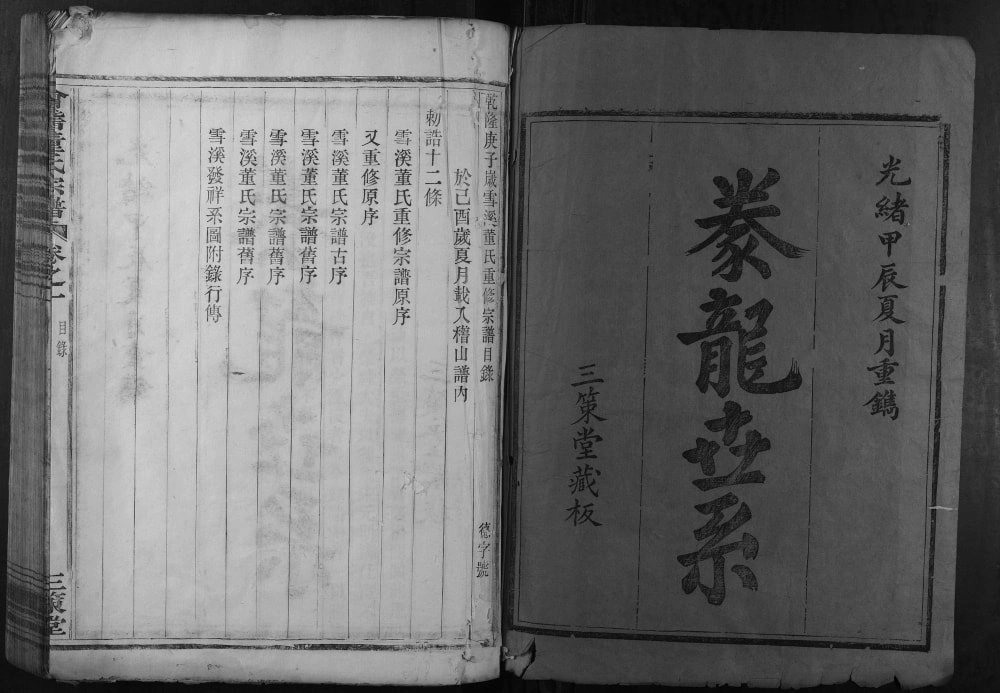 光緒甲辰夏月重鐫
豢龍世系
三策堂藏板
乾隆庚子嵗雪溪董氏重修宗譜目錄
德字號
於己酉歲夏月載入稽山譜內
勅誥十二條
雪溪董氏重修宗譜原序
又重修原序
雪溪董氏宗譜古序
雪溪董氏宗譜舊序
雪溪董氏宗譜舊序
雪溪董氏宗譜舊序
雪溪發祥系圖附錄行傳
會稽董氏宗譜
卷之
目錄
三策堂